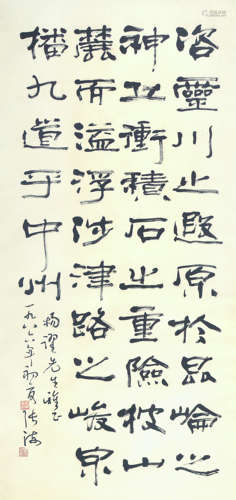 洛靈川之遐原於昆崙之
神丘衝積石之重險披山
麓而溢浮涉津路之峻泉
播九道于中州
先生雅正
一九八六年初夏張海